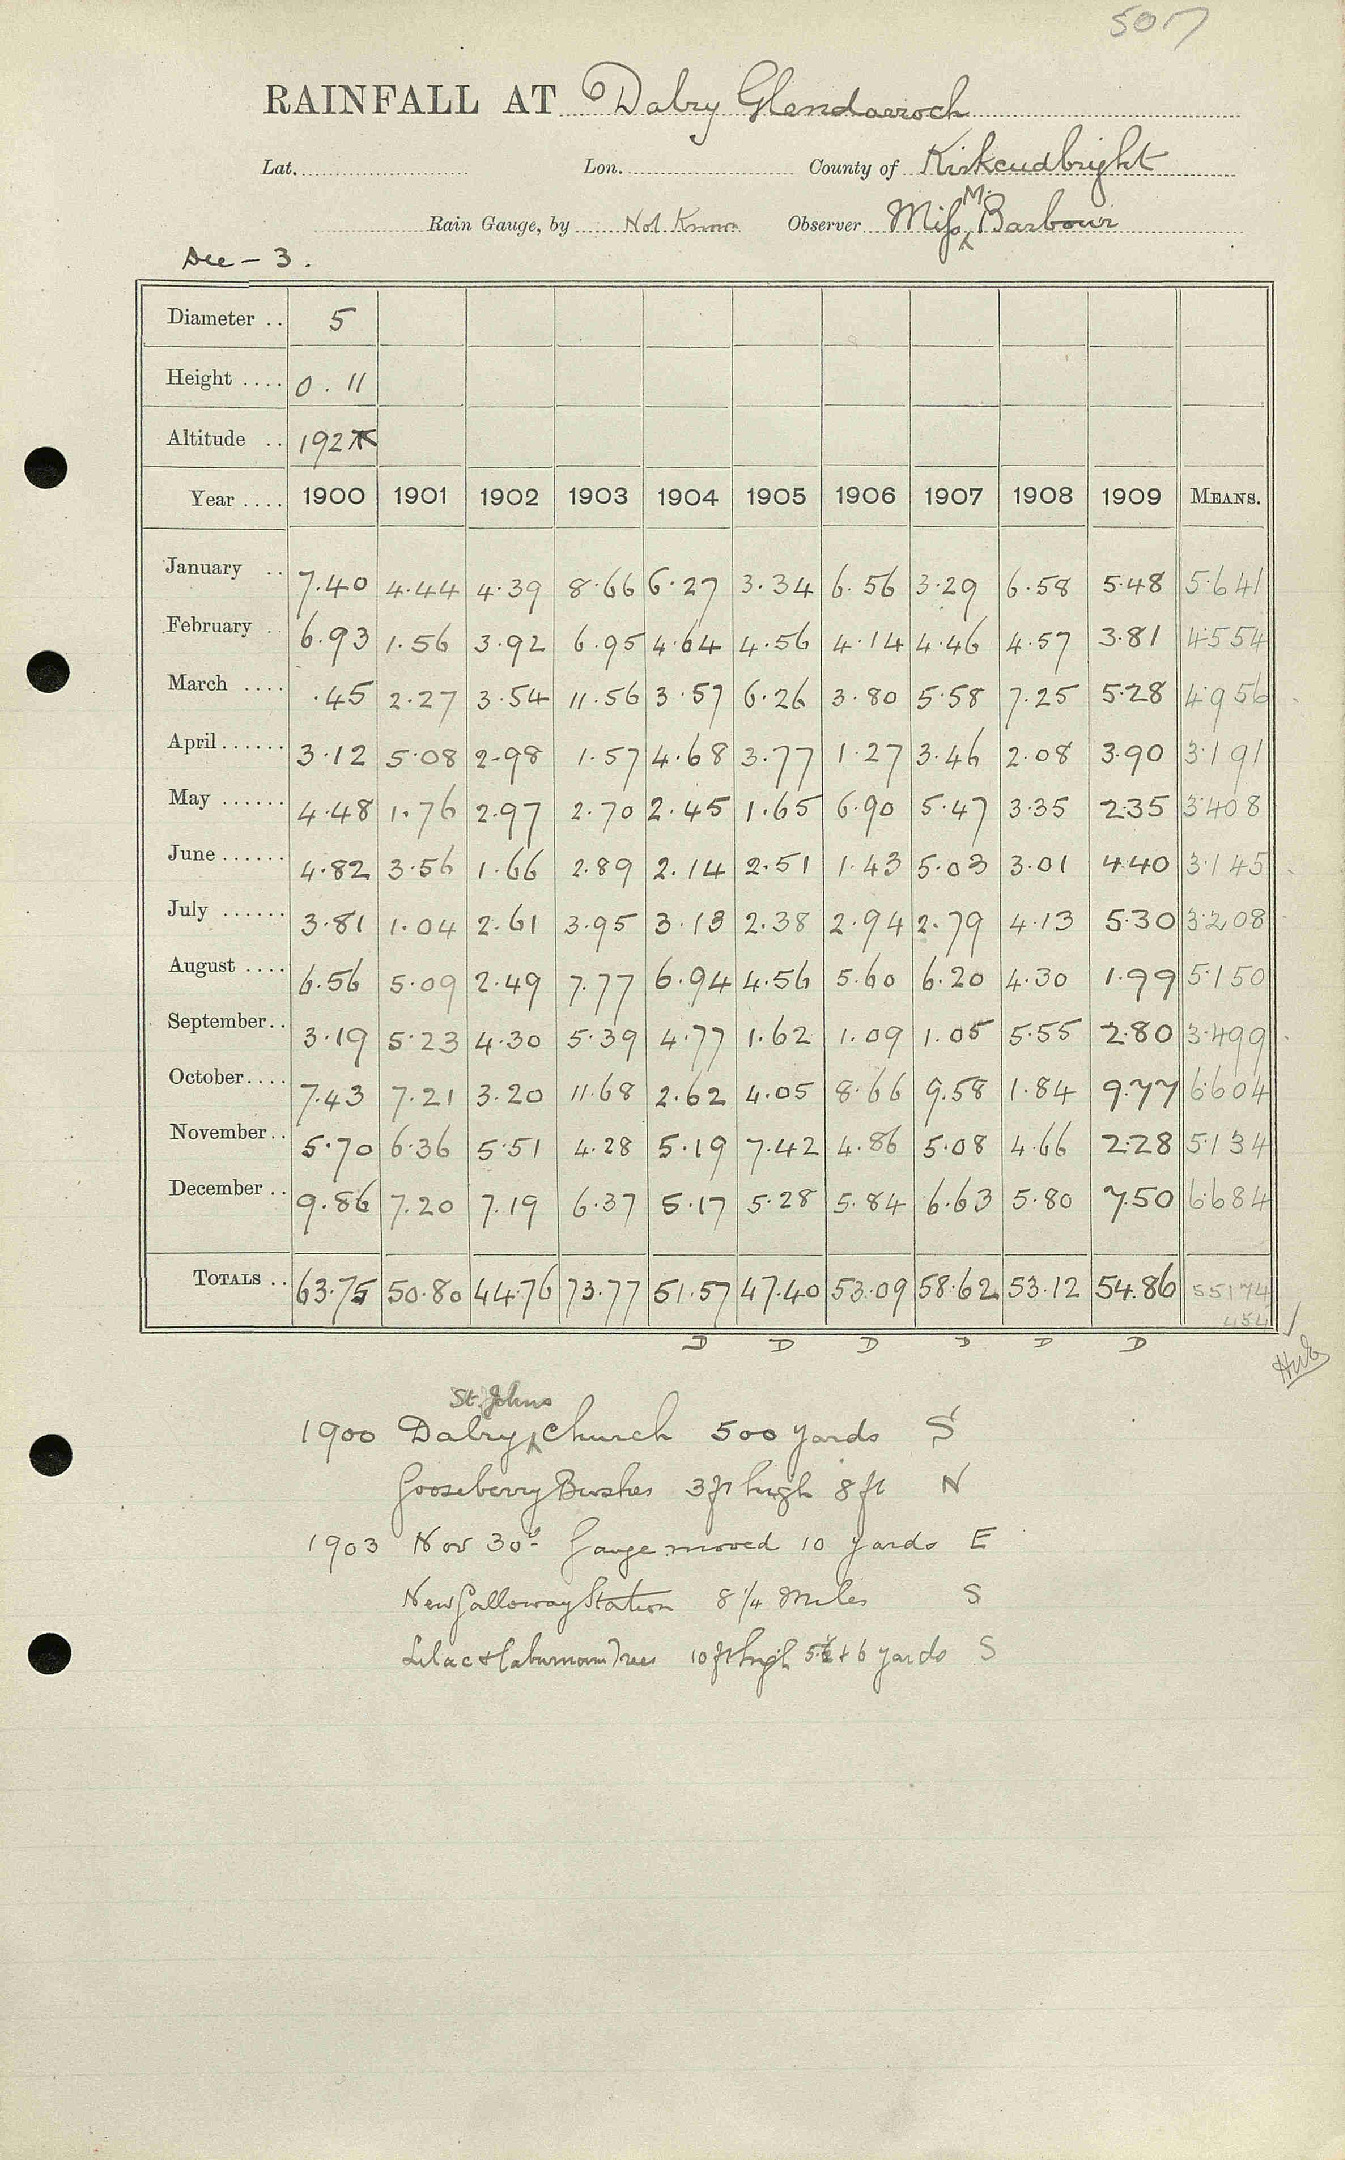 5017
RAINFALL AT Dalry Glendarroch
Lat. Lon. County of Kirkcudbright
Rain Gauge, by Not Known Observer Miss M. Barbour
Dee - 3.
Diameter .. 5
Height .... 0 . 11
Altitude .. 192
Year .... 1900 1901 1902 1903 1904 1905 1906 1907 1908 1909 MEANS.
January .. 7.40 4.44 4.39 8.66 6.27 3.34 6.56 3.29 6.58 5.48 5.641
February .. 6.93 1.56 3.92 6.95 4.64 4.56 4.14 4.46 4.57 3.81 4.554
March .... .45 2.27 3.54 11.56 3.57 6.26 3.80 5.58 7.25 5.28 4.956
April...... 3.12 5.08 2.98 1.57 4.68 3.77 1.27 3.46 2.08 3.90 3.191
May ...... 4.48 1.76 2.97 2.70 2.45 1.65 6.90 5.47 3.35 2.35 3.408
June...... 4.82 3.56 1.66 2.89 2.14 2.51 1.43 5.03 3.01 4.40 3.145
July ...... 3.81 1.04 2.61 3.95 3.13 2.38 2.94 2.79 4.13 5.30 3.208
August .... 6.56 5.09 2.49 7.77 6.94 4.56 5.60 6.20 4.30 1.99 5.150
September.. 3.19 5.23 4.30 5.39 4.77 1.62 1.09 1.05 5.55 2.80 3.499
October.... 7.43 7.21 3.20 11.68 2.62 4.05 8.66 9.58 1.84 9.77 6.604
November.. 5.70 6.36 5.51 4.28 5.19 7.42 4.86 5.08 4.66 2.28 5.134
December .. 9.86 7.20 7.19 6.37 5.17 5.28 5.84 6.63 5.80 7.50 6.684
TOTALS .. 63.75 50.80 44.76 73.77 51.57 47.40 53.09 58.62 53.12 54.86 55174
D D D D D D
St. Johns
1900 Dalry Church 500 yards S
Gooseberry Bushes 3 ft high 8 ft N
1903 Nov 30th Gauge moved 10 yards E
New Galloway Station 8 1/4 Miles S
Lilac & Laburnam Trees 10 ft high & 6 yards S